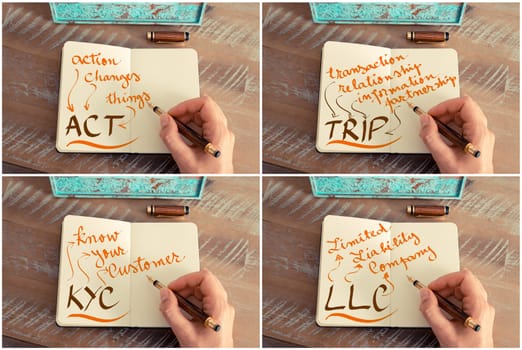 action
changes
things
ACT
transaction
relationship
information
partnership
TRIP
Know
your
Customer
KYC
Limited
Liability
Company
LLC